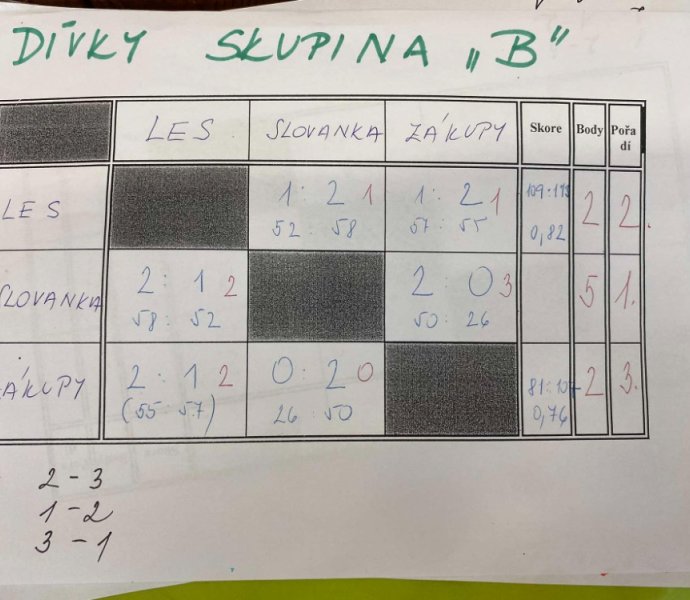 DÍVKY SKUPINA „B"
LES SLOVANKA ZÁKUPY Skore Body Pořa
dí
LES 1 : 2 1 1 : 2 1 2 2.
52 : 58 57 : 55 0,82
SLOVANKA 2 : 1 2 2 : 0 3 5 1.
58 : 52 50 : 26
ZÁKUPY 2 : 1 2 0 : 2 0 81:107 2 3.
(55 : 57) 26 : 50 0,76
2 - 3
1 - 2
3 - 1